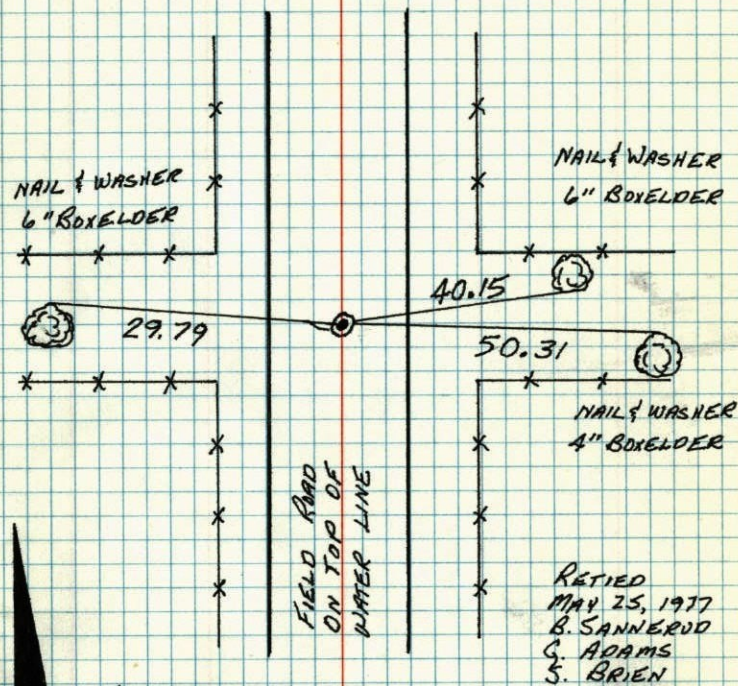 NAIL & WASHER
6" BOXELDER
NAIL & WASHER
6" BOXELDER
40.15
29.79
50.31
NAIL & WASHER
4" BOXELDER
FIELD ROAD
ON TOP OF
WATER LINE
RETIED
MAY 25, 1977
B. SANNERUD
G. ADAMS
S. BRIEN